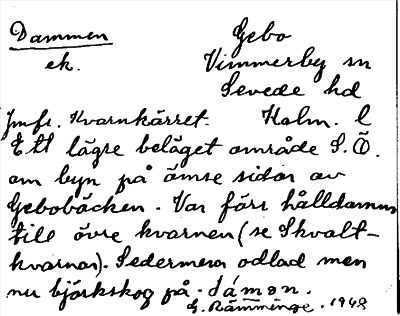 Dammen Gebo
ek. Vimmerby sn
Sevede hd
Jmfr. Kvarnkärret. Kalm. l
Ett lägre beläget område S.Ö.
om byn på ömse sidor av
Gebobäcken. Var förr hålldamm
till övre kvarnen (se Skvalt-
kvarnar). Sedermera odlad men
nu björkskog på. dámən.
G. Rämminge. 1948